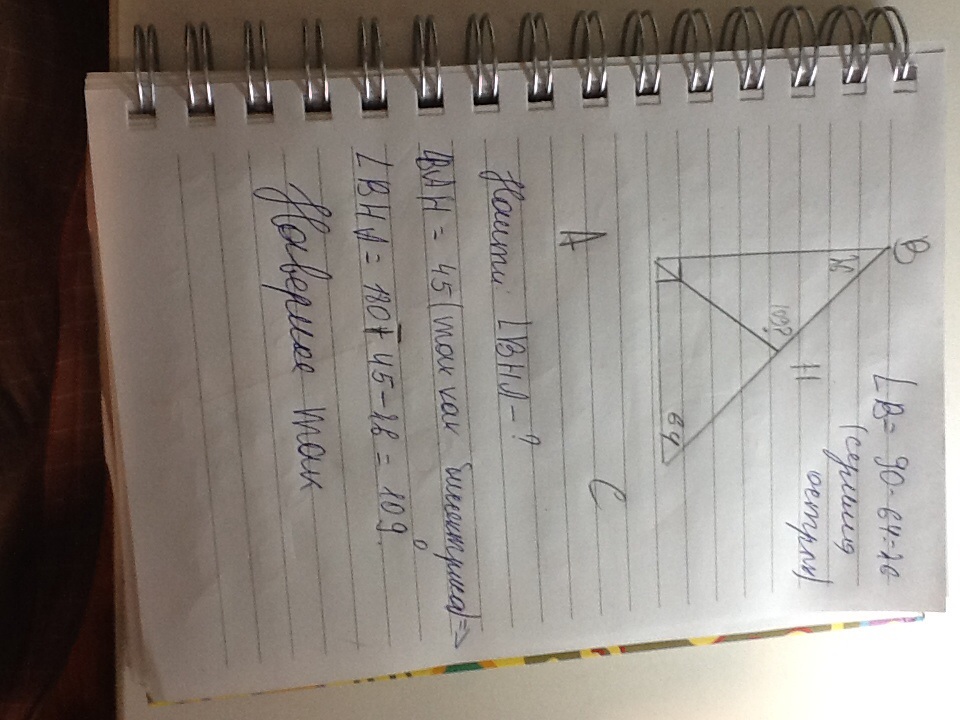 ∠B = 90-64=26
(сумма
острых)
B
26
H
109°
64
A
C
Найти ∠BHA-?
∠BAH = 45 (так как биссектриса) =>
∠BHA = 180-45-26 = 109°.
Наверное так